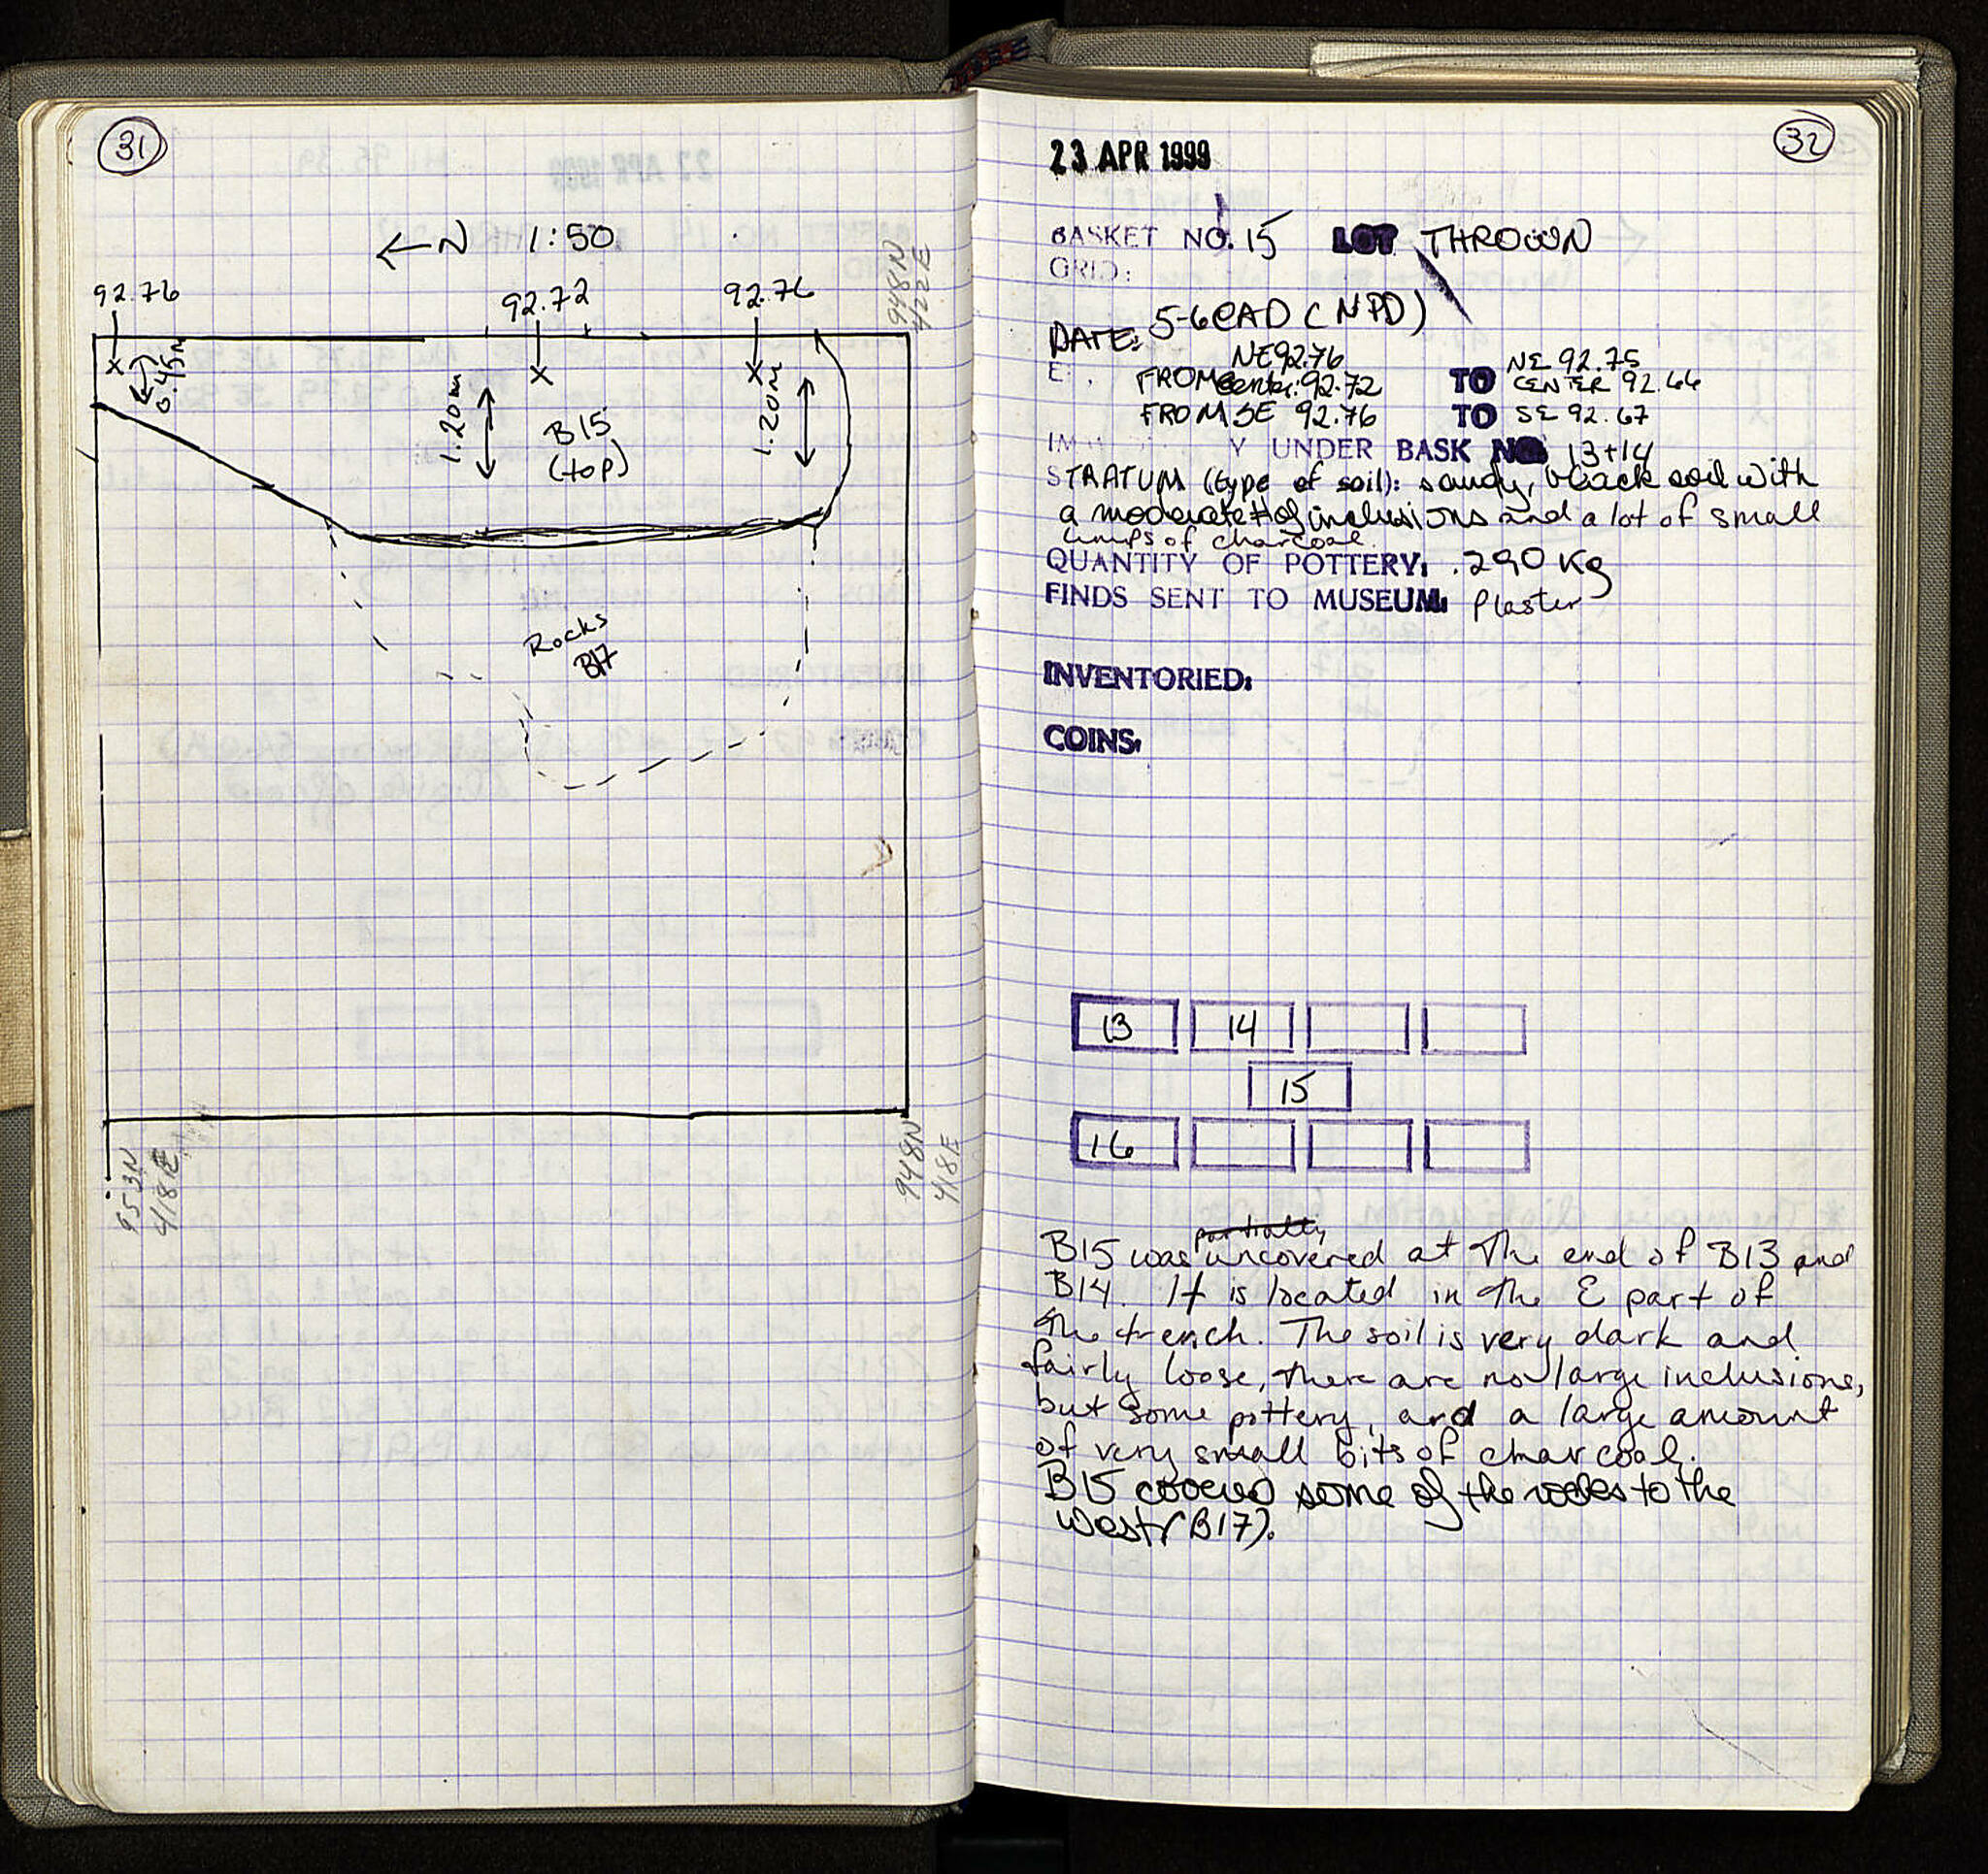 31
← N 1:50
948N
422E
92.76
92.72
92.76
0.45m
1.20m
B15
(top)
1.20m
Rocks
B17
953N
418E
948N
418E
32
23 APR 1999
BASKET NO. 15 LOT THROWN
GRID:
DATE: 5-6CAD (NPD)
NE 92.76 NE 92.75
FROM Center: 92.72 TO CENTER 92.66
FROM SE 92.76 TO SE 92.67
Y UNDER BASK NO 13+14
STRATUM (type of soil): sandy, black soil with
a moderate # of inclusions and a lot of small
lumps of charcoal.
QUANTITY OF POTTERY: .290 Kg
FINDS SENT TO MUSEUM: Plaster
INVENTORIED:
COINS:
13 14
15
16
partially
B15 was uncovered at the end of B13 and
B14. It is located in the E part of
the trench. The soil is very dark and
fairly loose, there are no large inclusions,
but some pottery, and a large amount
of very small bits of charcoal.
B15 covered some of the rocks to the
west (B17).